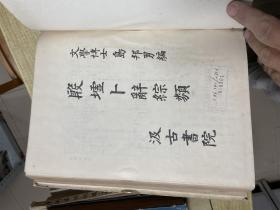 文學博士島邦男編
殷墟卜辭綜類
汲古書院